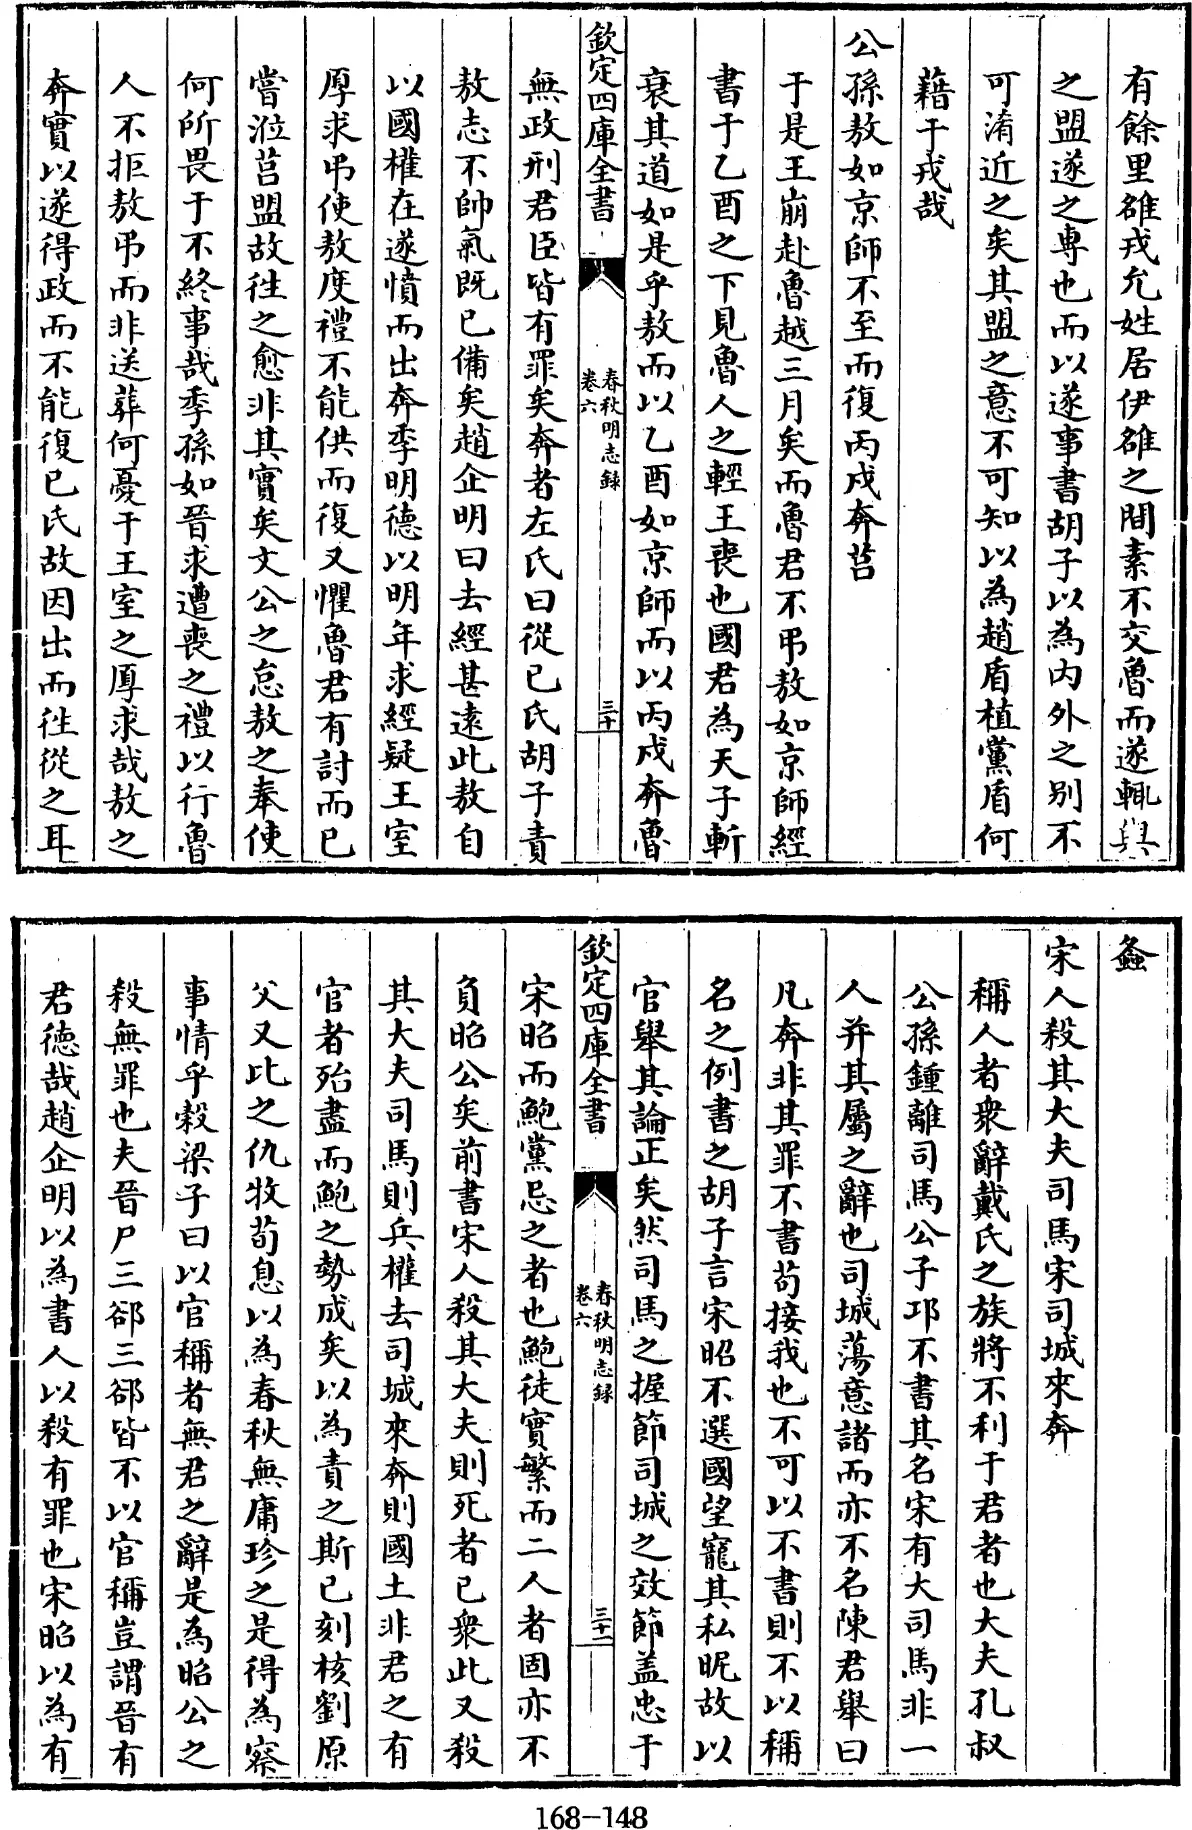 有餘里雒戎允姓居伊雒之間素不交魯而遂輒與
之盟遂之專也而以遂事書胡子以為内外之别不
可淆近之矣其盟之意不可知以為趙盾植黨盾何
藉于戎哉
公孫敖如京師不至而復丙戌奔莒
于是王崩赴魯越三月矣而魯君不弔敖如京師經
書于乙酉之下見魯人之輕王喪也國君為天子斬
衰其道如是乎敖而以乙酉如京師而以丙戌奔魯
欽定四庫全書
春秋明志録
卷六
三十
無政刑君臣皆有罪矣奔者左氏曰從已氏胡子責
敖志不帥氣既已備矣趙企明曰去經甚遠此敖自
以國權在遂憤而出奔季明德以明年求經疑王室
厚求弔使敖度禮不能供而復又懼魯君有討而已
嘗涖莒盟故徃之愈非其實矣文公之怠敖之奉使
何所畏于不終事哉季孫如晉求遭喪之禮以行魯
人不拒敖弔而非送葬何憂于王室之厚求哉敖之
奔實以遂得政而不能復已氏故因出而徃從之耳
螽
宋人殺其大夫司馬宋司城來奔
稱人者衆辭戴氏之族將不利于君者也大夫孔叔
公孫鍾離司馬公子卭不書其名宋有大司馬非一
人并其屬之辭也司城蕩意諸而亦不名陳君舉曰
凡奔非其罪不書茍接我也不可以不書則不以稱
名之例書之胡子言宋昭不選國望寵其私昵故以
官舉其論正矣然司馬之握節司城之效節盖忠于
欽定四庫全書
春秋明志録
卷六
三十一
宋昭而鮑黨忌之者也鮑徒實繁而二人者固亦不
負昭公矣前書宋人殺其大夫則死者已衆此又殺
其大夫司馬則兵權去司城來奔則國土非君之有
官者殆盡而鮑之勢成矣以為責之斯已刻核劉原
父又比之仇牧荀息以為春秋無庸珍之是得為察
事情乎榖梁子曰以官稱者無君之辭是為昭公之
殺無罪也夫晉尸三郤三郤皆不以官稱豈謂晉有
君德哉趙企明以為書人以殺有罪也宋昭以為有
168-148